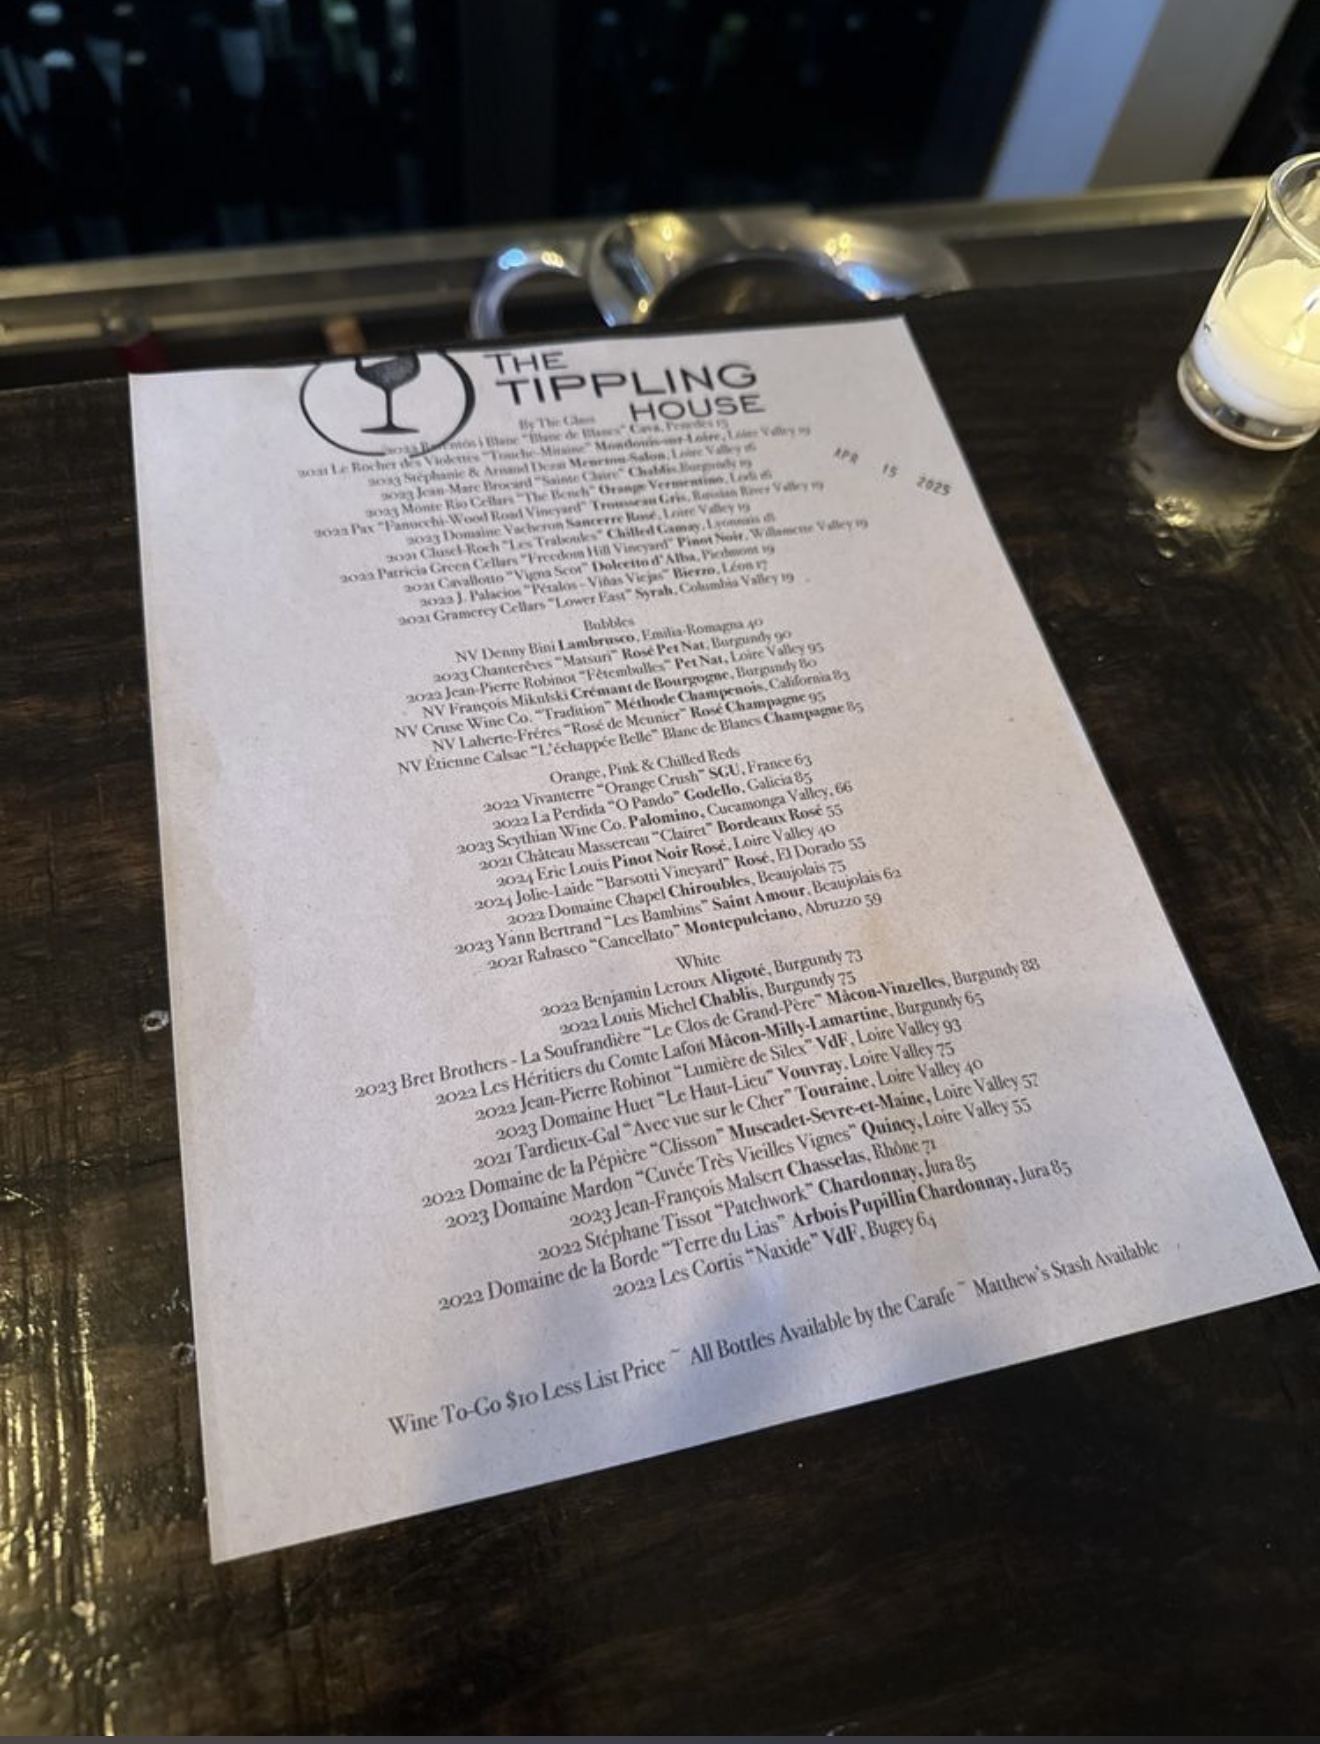 THE
TIPPLING
HOUSE
APR 15 2025
By The Glass
2022 Raventós i Blanc "Blanc de Blancs" Cava, Penedès 15
2021 Le Rocher des Violettes "Touche-Mitaine" Montlouis-sur-Loire, Loire Valley 19
2023 Stéphanie & Arnaud Dezat Menetou-Salon, Loire Valley 16
2023 Jean-Marc Brocard "Sainte Claire" Chablis, Burgundy 19
2023 Monte Rio Cellars "The Bench" Orange Vermentino, Lodi 16
2022 Pax "Fanucchi-Wood Road Vineyard" Trousseau Gris, Russian River Valley 19
2023 Domaine Vacheron Sancerre Rosé, Loire Valley 19
2021 Clusel-Roch "Les Traboules" Chilled Gamay, Lyonnais
2022 Patricia Green Cellars "Freedom Hill Vineyard" Pinot Noir, Willamette Valley 19
2021 Cavallotto "Vigna Scot" Dolcetto d'Alba, Piedmont 19
2022 J. Palacios "Pétalos - Viñas Viejas" Bierzo, Léon 17
2021 Gramercy Cellars "Lower East" Syrah, Columbia Valley 19
Bubbles
NV Denny Bini Lambrusco, Emilia-Romagna 40
2023 Chanterêves "Matsuri" Rosé Pet Nat, Burgundy 90
2022 Jean-Pierre Robinot "Fêtembulles" Pet Nat, Loire Valley 95
NV François Mikulski Crémant de Bourgogne, Burgundy 80
NV Cruse Wine Co. "Tradition" Méthode Champenois, California 83
NV Laherte-Fréres "Rosé de Meunier" Rosé Champagne 95
NV Étienne Calsac "L'échappée Belle" Blanc de Blancs Champagne 85
Orange, Pink & Chilled Reds
2022 Vivanterre "Orange Crush" SGU, France 63
2022 La Perdida "O Pando" Godello, Galicia 85
2023 Scythian Wine Co. Palomino, Cucamonga Valley, 66
2021 Château Massereau "Clairet" Bordeaux Rosé 55
2024 Eric Louis Pinot Noir Rosé, Loire Valley 40
2024 Jolie-Laide "Barsotti Vineyard" Rosé, El Dorado 55
2022 Domaine Chapel Chiroubles, Beaujolais 75
2023 Yann Bertrand "Les Bambins" Saint Amour, Beaujolais 62
2021 Rabasco "Cancellato" Montepulciano, Abruzzo 59
White
2022 Benjamin Leroux Aligoté, Burgundy 73
2022 Louis Michel Chablis, Burgundy 75
2023 Bret Brothers - La Soufrandière "Le Clos de Grand-Père" Mâcon-Vinzelles, Burgundy 88
2022 Les Héritiers du Comte Lafon Mâcon-Milly-Lamartine, Burgundy 65
2022 Jean-Pierre Robinot "Lumière de Silex" VdF, Loire Valley 93
2023 Domaine Huet "Le Haut-Lieu" Vouvray, Loire Valley 75
2021 Tardieux-Gal "Avec vue sur le Cher" Touraine, Loire Valley 40
2022 Domaine de la Pépière "Clisson" Muscadet-Sevre-et-Maine, Loire Valley 57
2023 Domaine Mardon "Cuvée Très Vieilles Vignes" Quincy, Loire Valley 55
2023 Jean-François Malsert Chasselas, Rhône 71
2022 Stéphane Tissot "Patchwork" Chardonnay, Jura 85
2022 Domaine de la Borde "Terre du Lias" Arbois Pupillin Chardonnay, Jura 85
2022 Les Cortis "Naxide" VdF, Bugey 64
Wine To-Go $10 Less List Price ~ All Bottles Available by the Carafe ~ Matthew's Stash Available